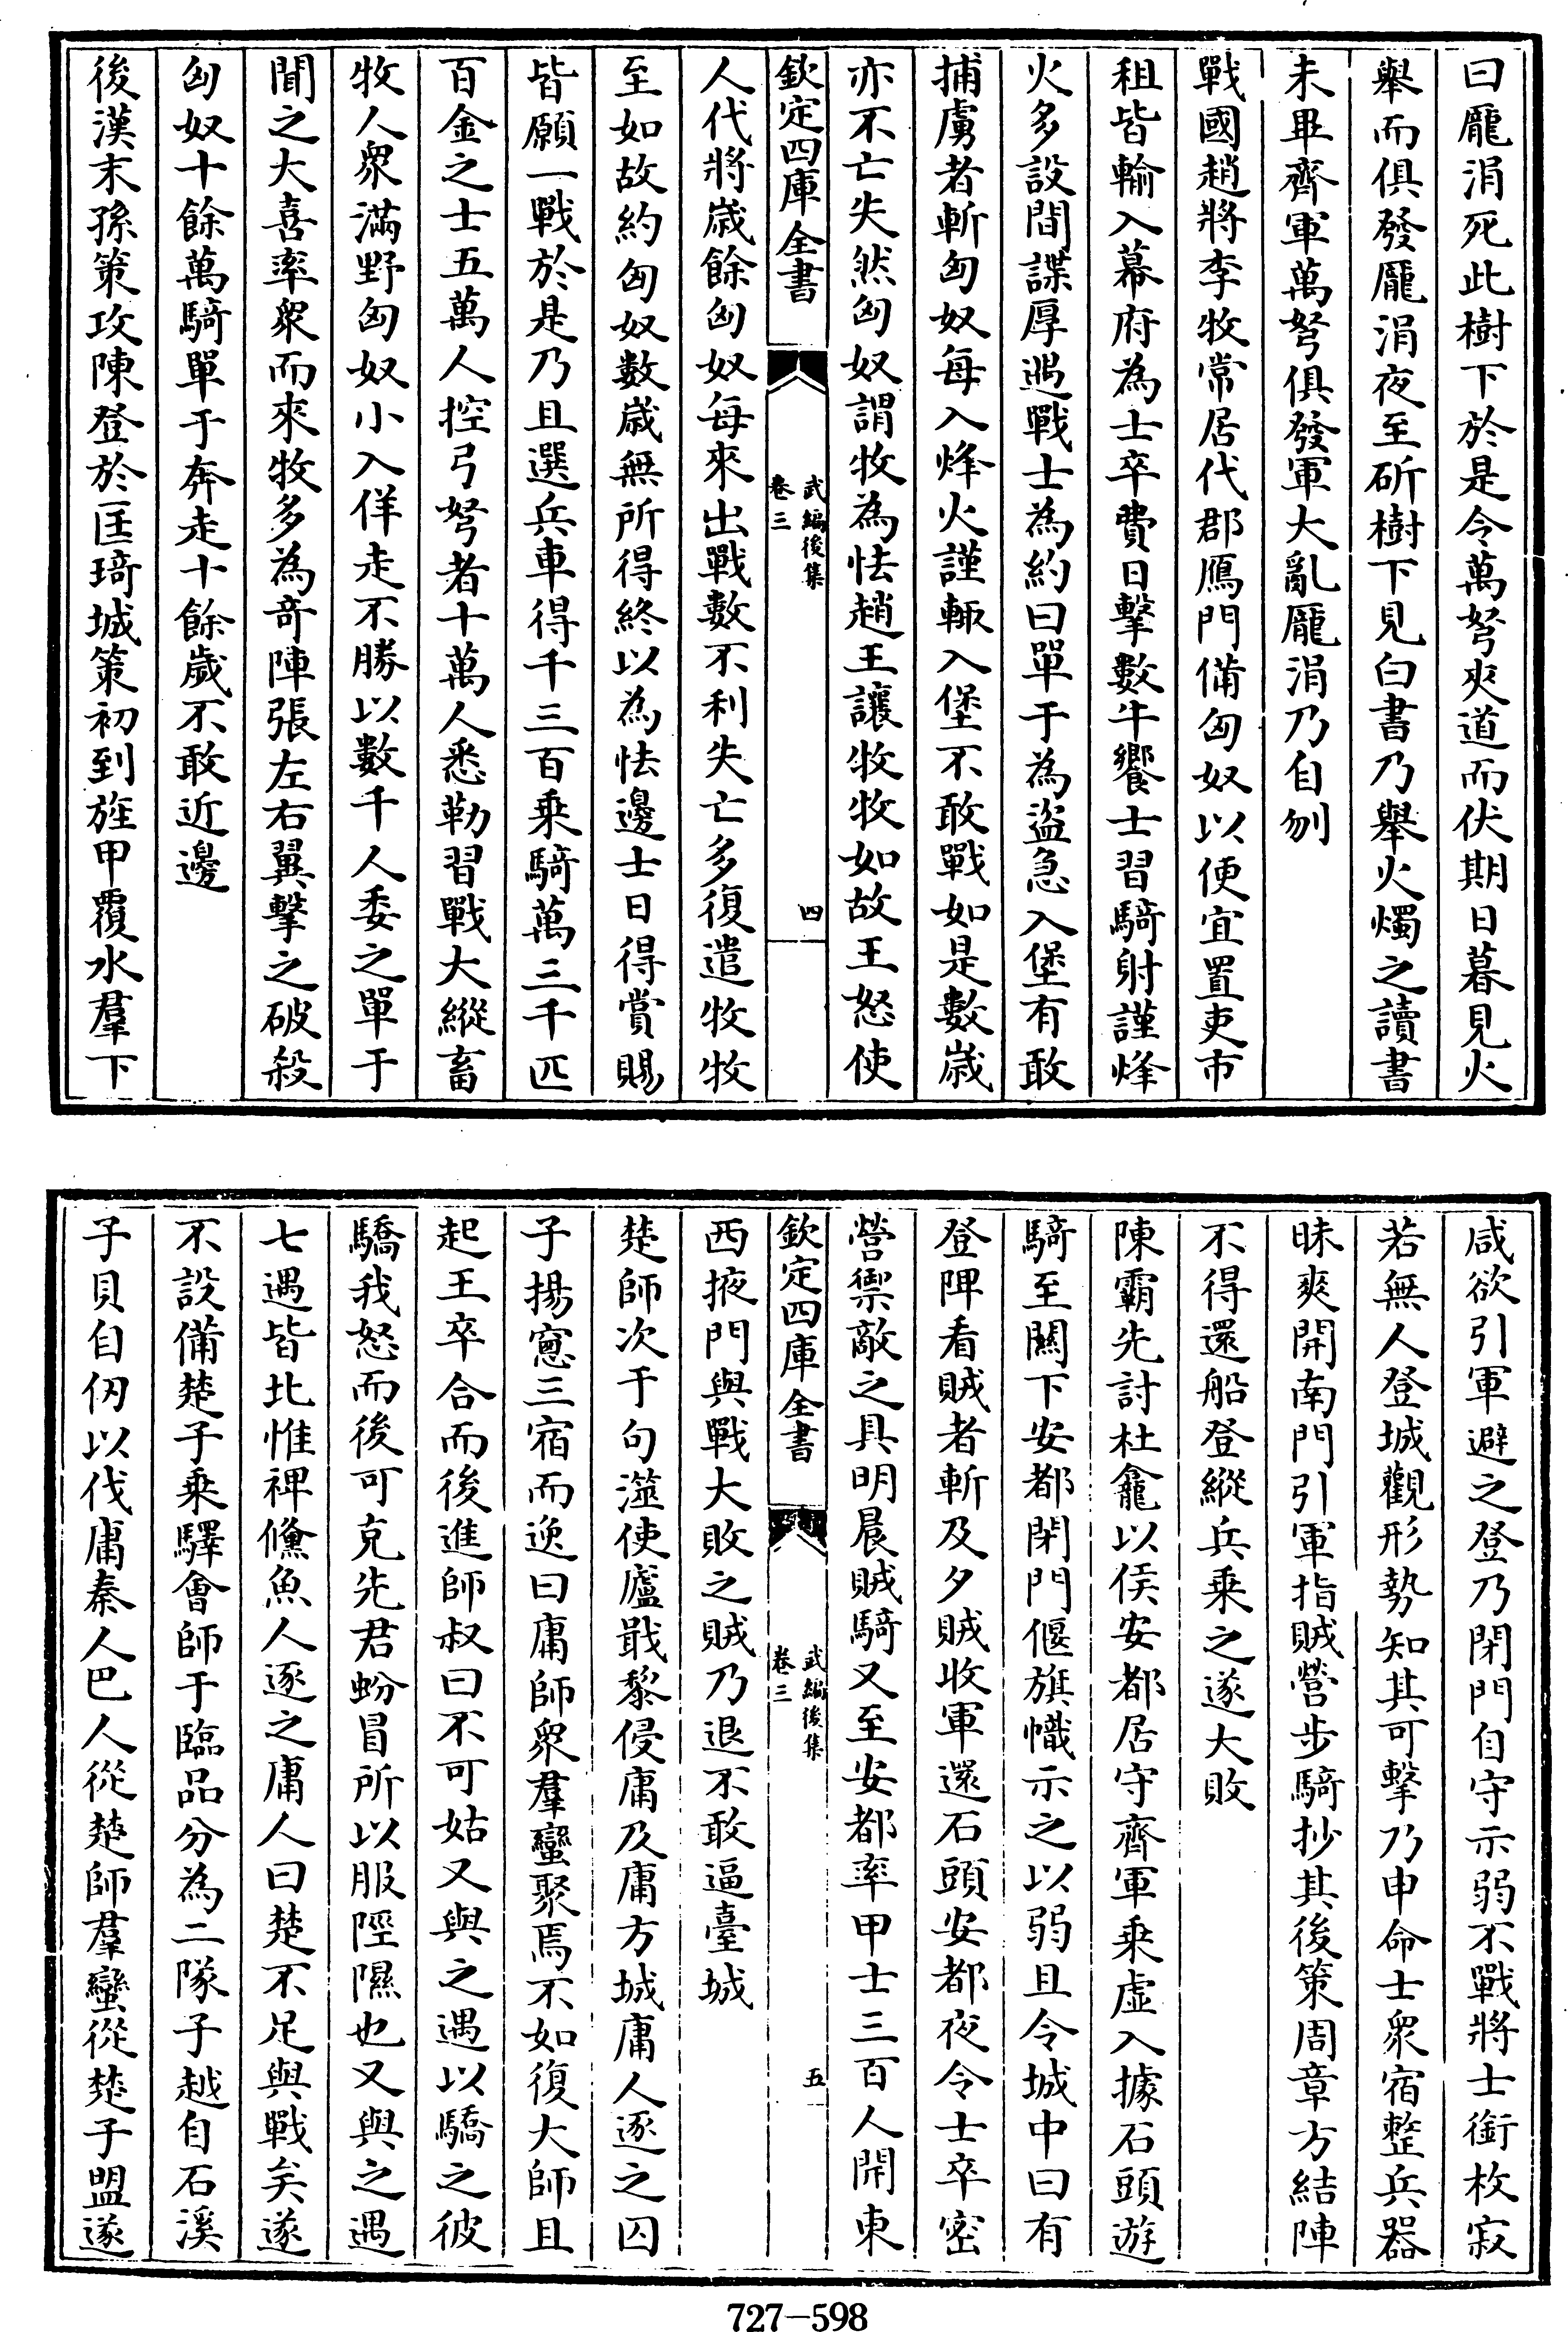 曰龎涓死此樹下於是令萬弩夾道而伏期日暮見火
舉而俱發龎涓夜至斫樹下見白書乃舉火燭之讀書
未畢齊軍萬弩俱發軍大亂龎涓乃自刎
戰國趙將李牧常居代郡鴈門備匈奴以使宜置吏市
租皆輸入幕府為士卒費日擊數牛饗士習騎射謹烽
火多設間諜厚遇戰士為約曰單于為盜急入堡有敢
捕虜者斬匈奴每入烽火謹輒入堡不敢戰如是數歲
亦不亡失然匈奴謂牧為怯趙王讓牧牧如故王怒使
欽定四庫全書
武編後集
卷三
四
人代將歲餘匈奴每來出戰數不利失亡多復遣牧牧
至如故約匈奴數歲無所得終以為怯邊士日得賞賜
皆願一戰於是乃且選兵車得千三百乘騎萬三千匹
百金之士五萬人控弓弩者十萬人悉勒習戰大縱畜
牧人衆滿野匈奴小入佯走不勝以數千人委之單于
聞之大喜率衆而來牧多為奇陣張左右翼擊之破殺
匈奴十餘萬騎單于奔走十餘歲不敢近邊
後漢末孫策攻陳登於匡琦城策初到旌甲覆水羣下
咸欲引軍避之登乃閉門自守示弱不戰將士銜枚寂
若無人登城觀形勢知其可擊乃申命士衆宿整兵器
昧爽開南門引軍指賊營步騎抄其後策周章方結陣
不得還船登縱兵乘之遂大敗
陳霸先討杜龕以侯安都居守齊軍乘虛入據石頭遊
騎至闕下安都閉門偃旗幟示之以弱且令城中曰有
登陴看賊者斬及夕賊收軍還石頭安都夜令士卒密
營禦敵之具明晨賊騎又至安都率甲士三百人開東
欽定四庫全書
武編後集
卷三
五
西掖門與戰大敗之賊乃退不敢逼臺城
楚師次于句澨使廬戢黎侵庸及庸方城庸人逐之囚
子揚窻三宿而逸曰庸師衆羣蠻聚焉不如復大師且
起王卒合而後進師叔曰不可姑又與之遇以驕之彼
驕我怒而後可克先君蚡冒所以服陘隰也又與之遇
七遇皆北惟裨儵魚人逐之庸人曰楚不足與戰矣遂
不設備楚子乘驛會師于臨品分為二隊子越自石溪
子貝自仞以伐庸秦人巴人從楚師羣蠻從楚子盟遂
727-598